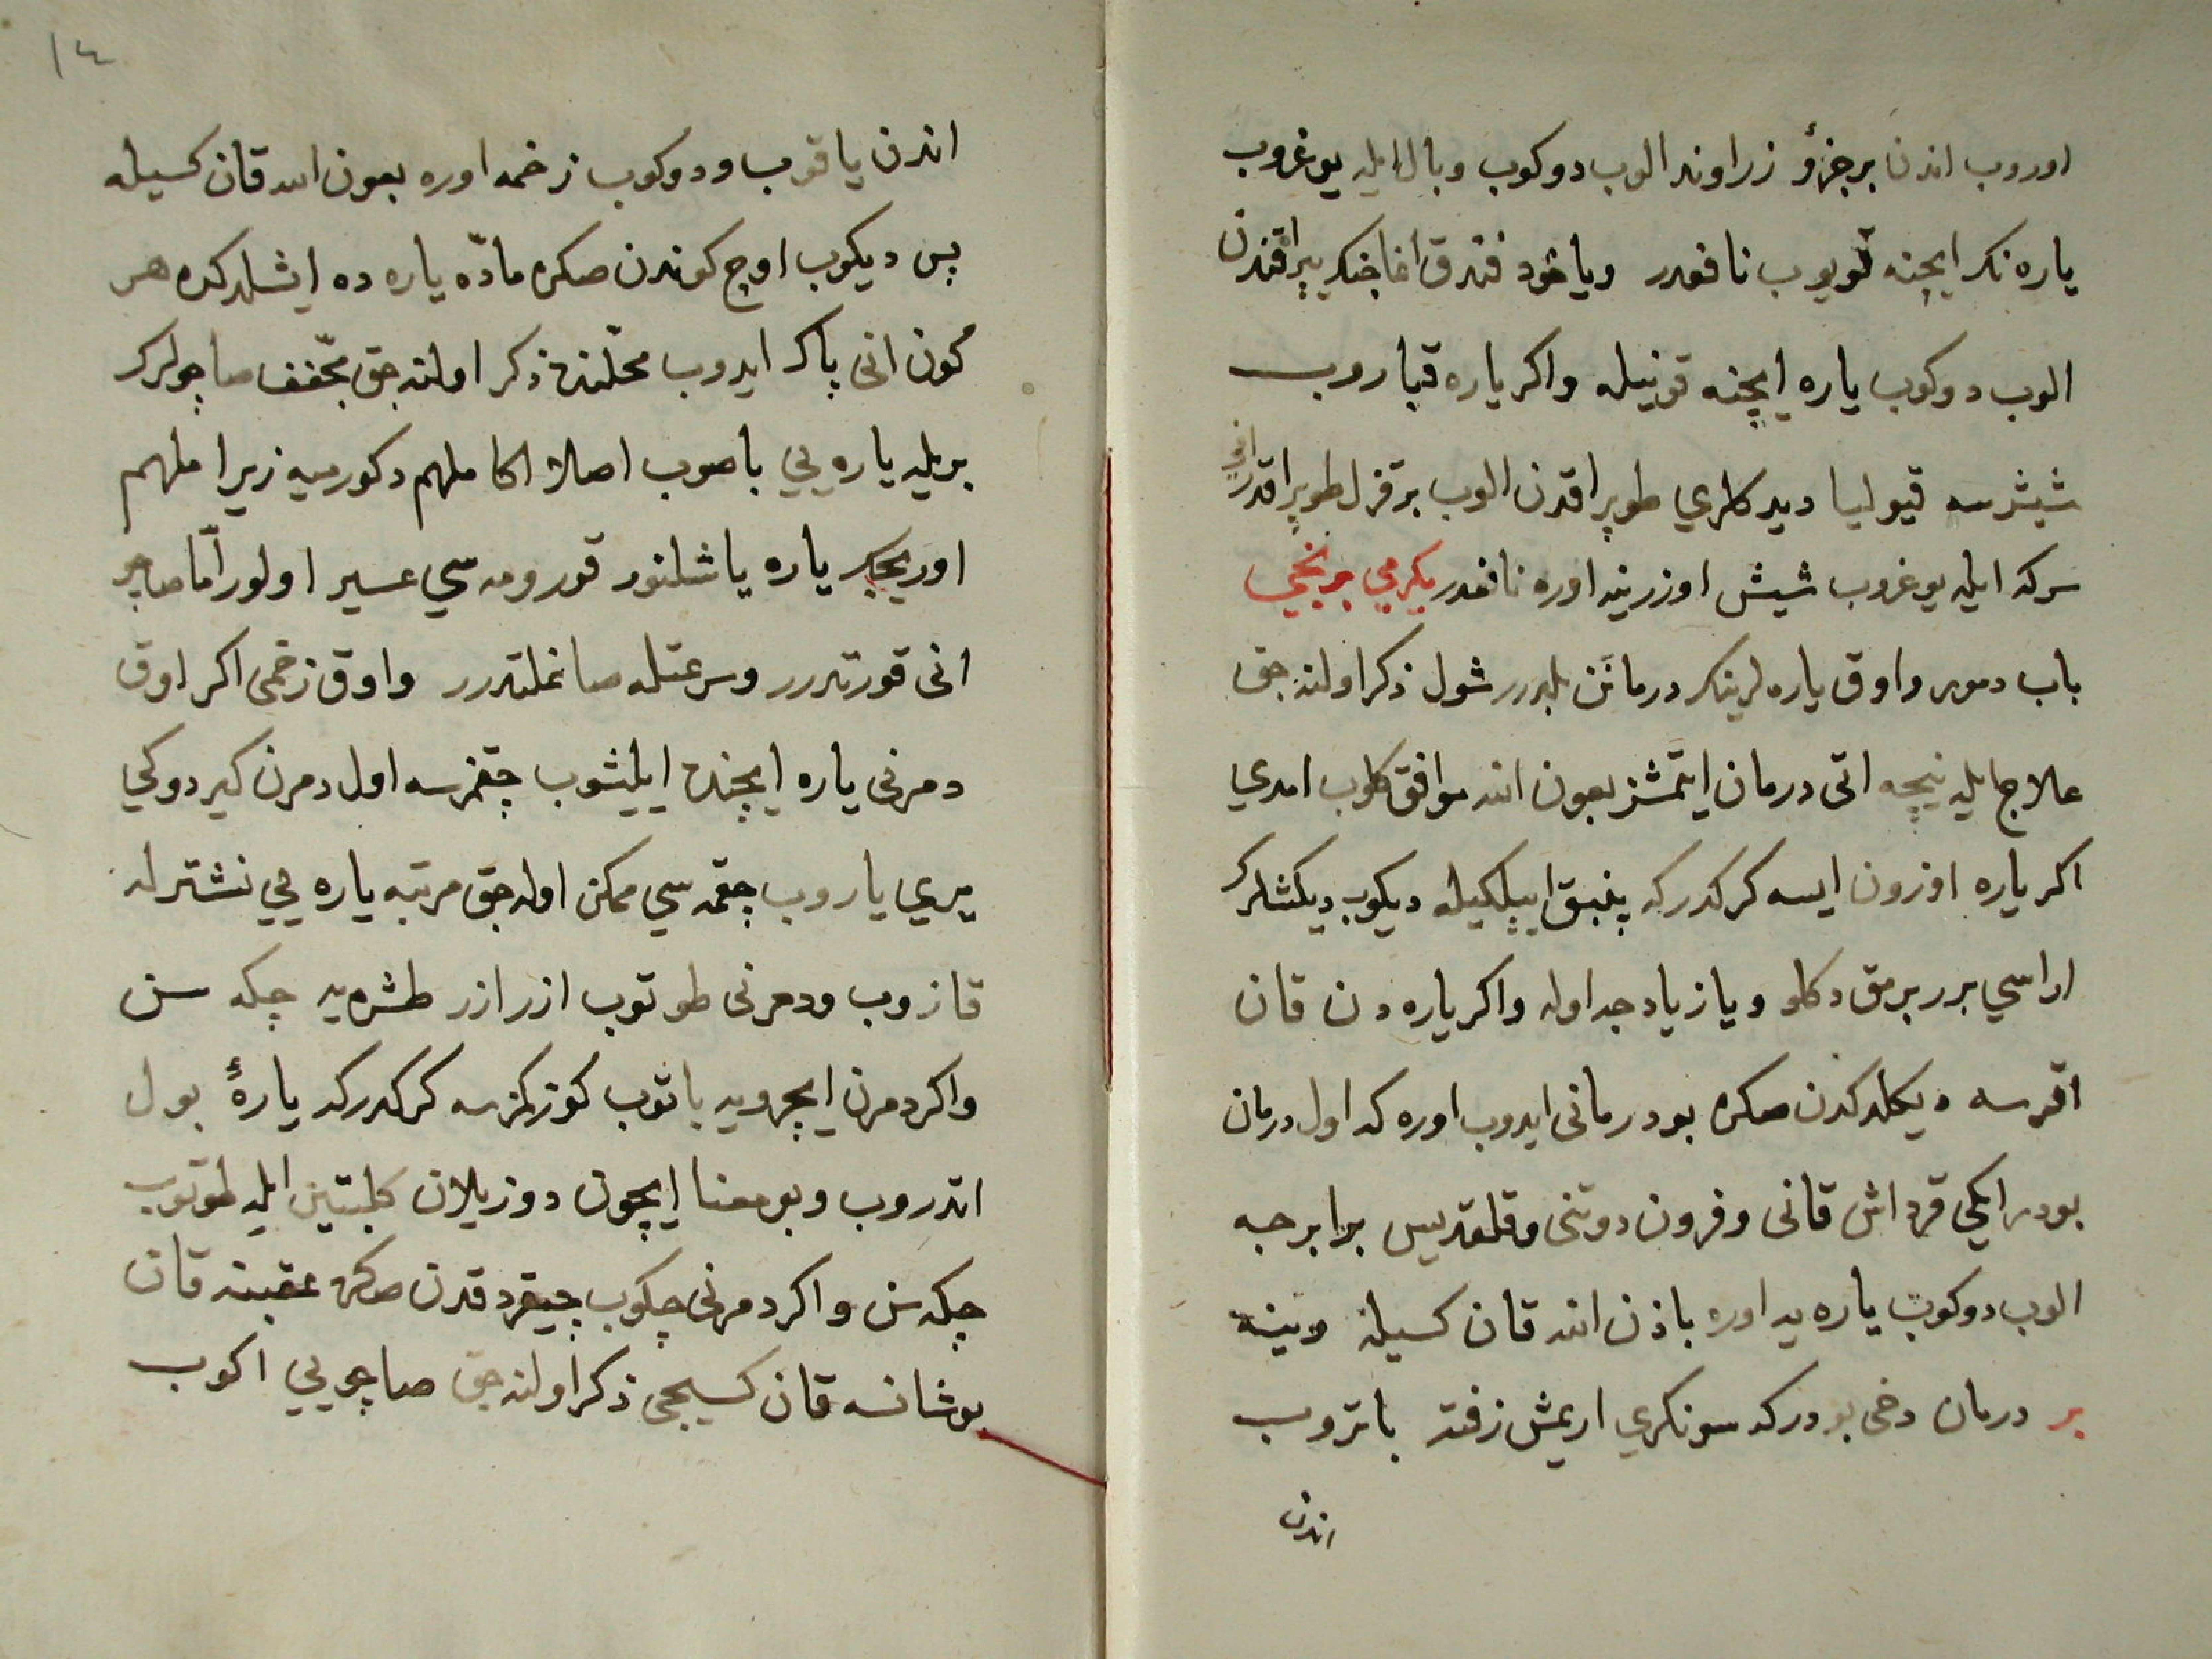 اوروب اندن برجزؤ زراوند الوب دوكوب وبال ايله يوغروب
ياره نك ايچنه قويوب نافعدر وياخود فندق اغاجنك يپراقندن
الوب دوكوب ياره ايچنه قونيله واكر ياره قباروب
شيشرسه قيوليا ديدكلري طوپراقدن الوب بر قزل طوپراقدر
سركه ايله يوغروب شيش اوزرينه اوره نافعدر يكرمي برنجي
باب دمور واوق ياره لرينك درمانن بلدرر شول ذكر اولنه جق
علاج ايله نيچه اتى درمان ايتمشز بعون الله موافق كلوب امدي
اكر ياره اوزون ايسه كركدركه پنبق ايپلكيله ديكوب ديكشلرك
اراسي برر برمق دكلو ويا زيادجه اوله واكر ياره دن قان
اقرسه ديكلدكدن صكره بو درمانى ايدوب اوره كه اول درمان
بودر ايكي قرداش قانى وفرون دوتنى وقلقديس برابر جه
الوب دوكوب ياره يه اوره باذن الله قان كسيله وينه
بر درمان دخى بودركه سونكري اريمش زفته باتروب
اندن
١٤
اندن ياقوب ودوكوب زخمه اوره بعون الله قان كسيله
پس ديكوب اوچ كوندن صكره مادّه ياره ده ايشلدكده هر
كون انى پاك ايدوب محلنده ذكر اولنه جق مجفف صاچولرك
بريله ياره يي باصوب اصلا اكا ملهم دكورميه زيرا ملهم
اوريجك ياره ياشلنور قورومه سي عسير اولور امّا صاچو
انى قورتدرر وسرعتله صاغلتدرر واوق زخمى اكر اوق
دمرنى ياره ايچنده ايليشوب چقمزسه اول دمرن كيردوكي
يري ياروب چقمه سي ممكن اوله جق مرتبه ياره يي نشترله
قازوب ودمرنى طوتوب ازر ازر طشره يه چكه سن
واكر دمرن ايچرويه باتوب كوزكمزسه كركدركه يارهٔ بول
اتدروب وبو معنا ايچون دوزيلان كلبتين ايله طوتوب
چكه سن واكر دمرنى چكوب چيقردقدن صكره عقبنده قان
بوشانسه قان كسيجى ذكر اولنه جق صاچويي اكوب